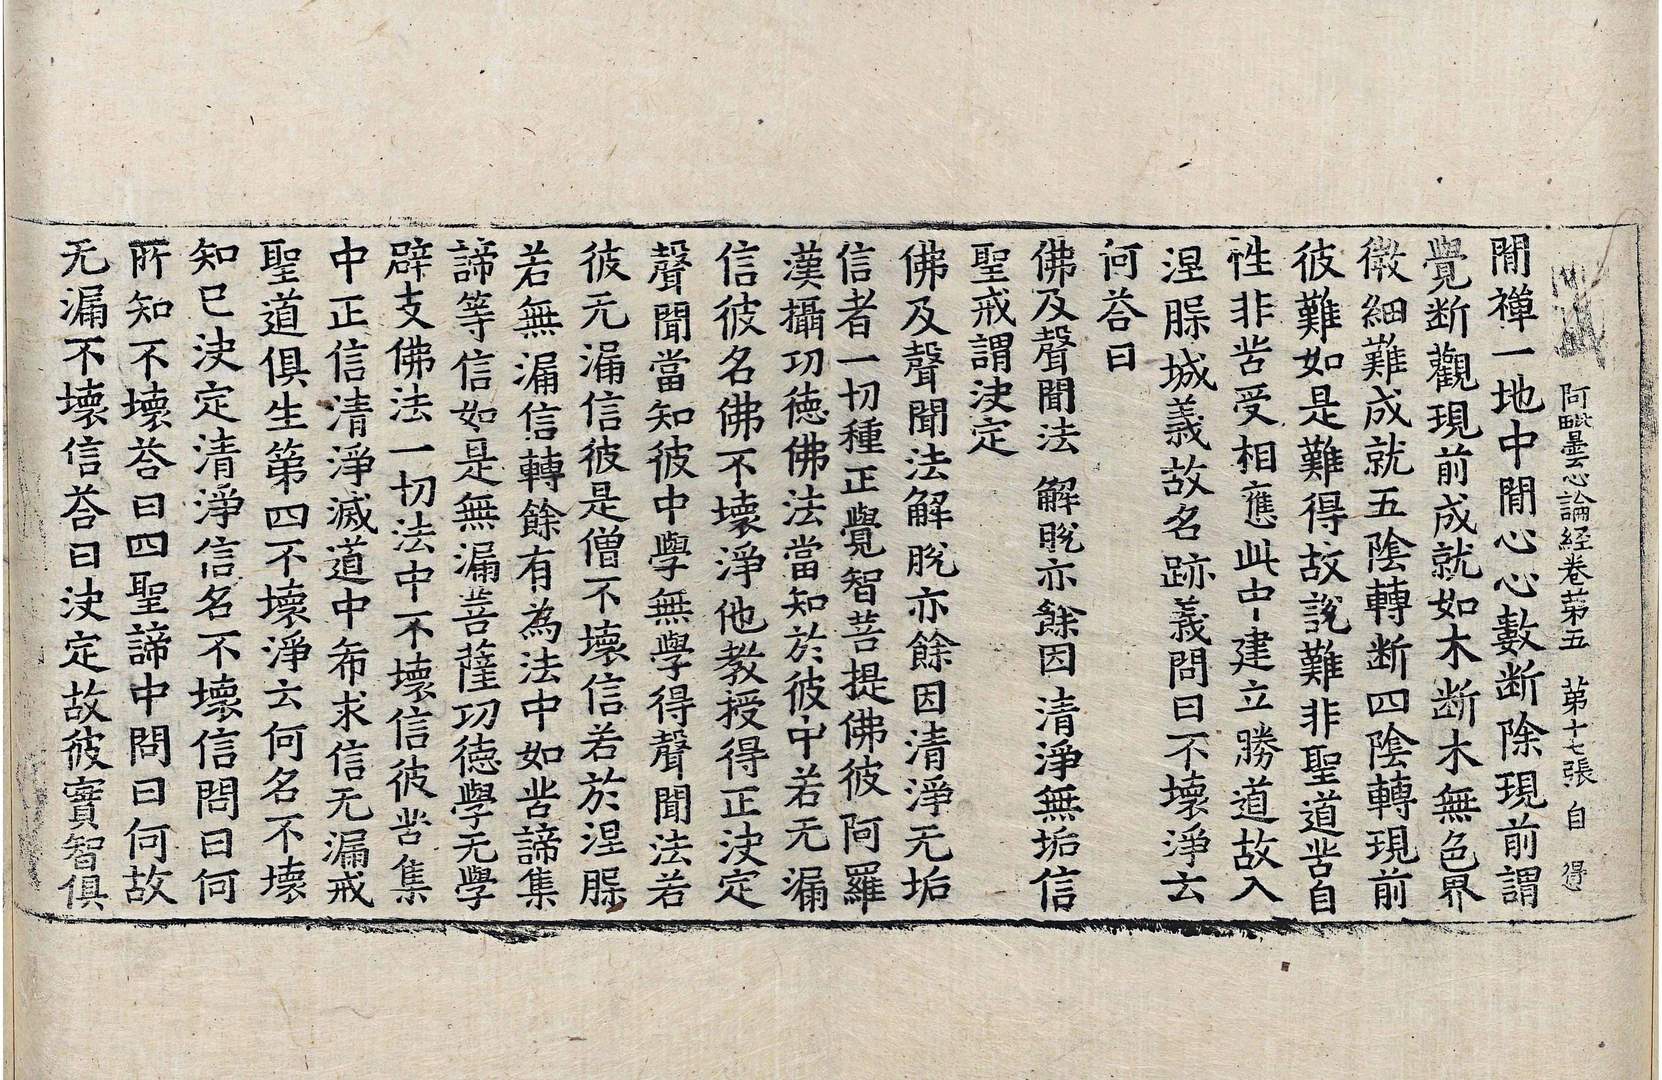 阿毗曇心論経卷苐五　苐十七張　自　得
閒禪一地中閒心心數断除現前謂
覺断觀現前成就如木断木無色界
微細難成就五陰轉断四陰轉現前
彼難如是難得故說難非聖道苦自
性非苦受相應此中建立勝道故入
涅槃城義故名跡義問曰不壞淨云
何荅曰
佛及聲聞法　解脫亦餘因　清淨無垢信
聖戒謂決定
佛及聲聞法解脫亦餘因清淨无垢
信者一切種正覺智菩提佛彼阿羅
漢攝功德佛法當知於彼中若无漏
信彼名佛不壞淨他教授得正決定
聲聞當知彼中學無學得聲聞法若
彼无漏信彼是僧不壞信若於涅槃
若無漏信轉餘有為法中如苦諦集
諦等信如是無漏菩薩功德學无學
辟支佛法一切法中不壞信彼苦集
中正信清淨滅道中希求信无漏戒
聖道俱生第四不壞淨云何名不壞
知已決定清淨信名不壞信問曰何
所知不壞荅曰四聖諦中問曰何故
无漏不壞信荅曰決定故彼實智俱